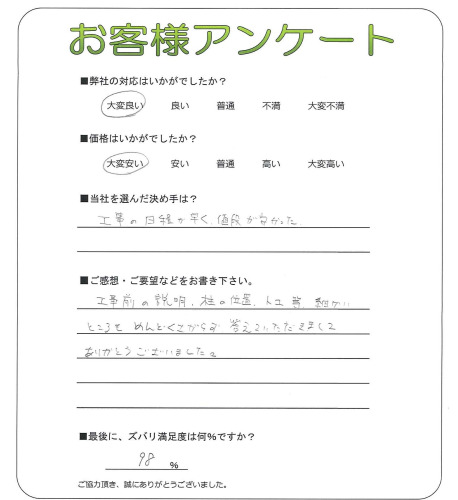 お客様アンケート
■弊社の対応はいかがでしたか？
大変良い 良い 普通 不満 大変不満
■価格はいかがでしたか？
大変安い 安い 普通 高い 大変高い
■当社を選んだ決め手は？
工事の日程が早く、値段が安かった。
■ご感想・ご要望などをお書き下さい。
工事前の説明、柱の位置、人工 等、細かい
ところをめんどくさがらず 答えていただきまして
ありがとうございました。
■最後に、ズバリ満足度は何％ですか？
98 ％
ご協力頂き、誠にありがとうございました。